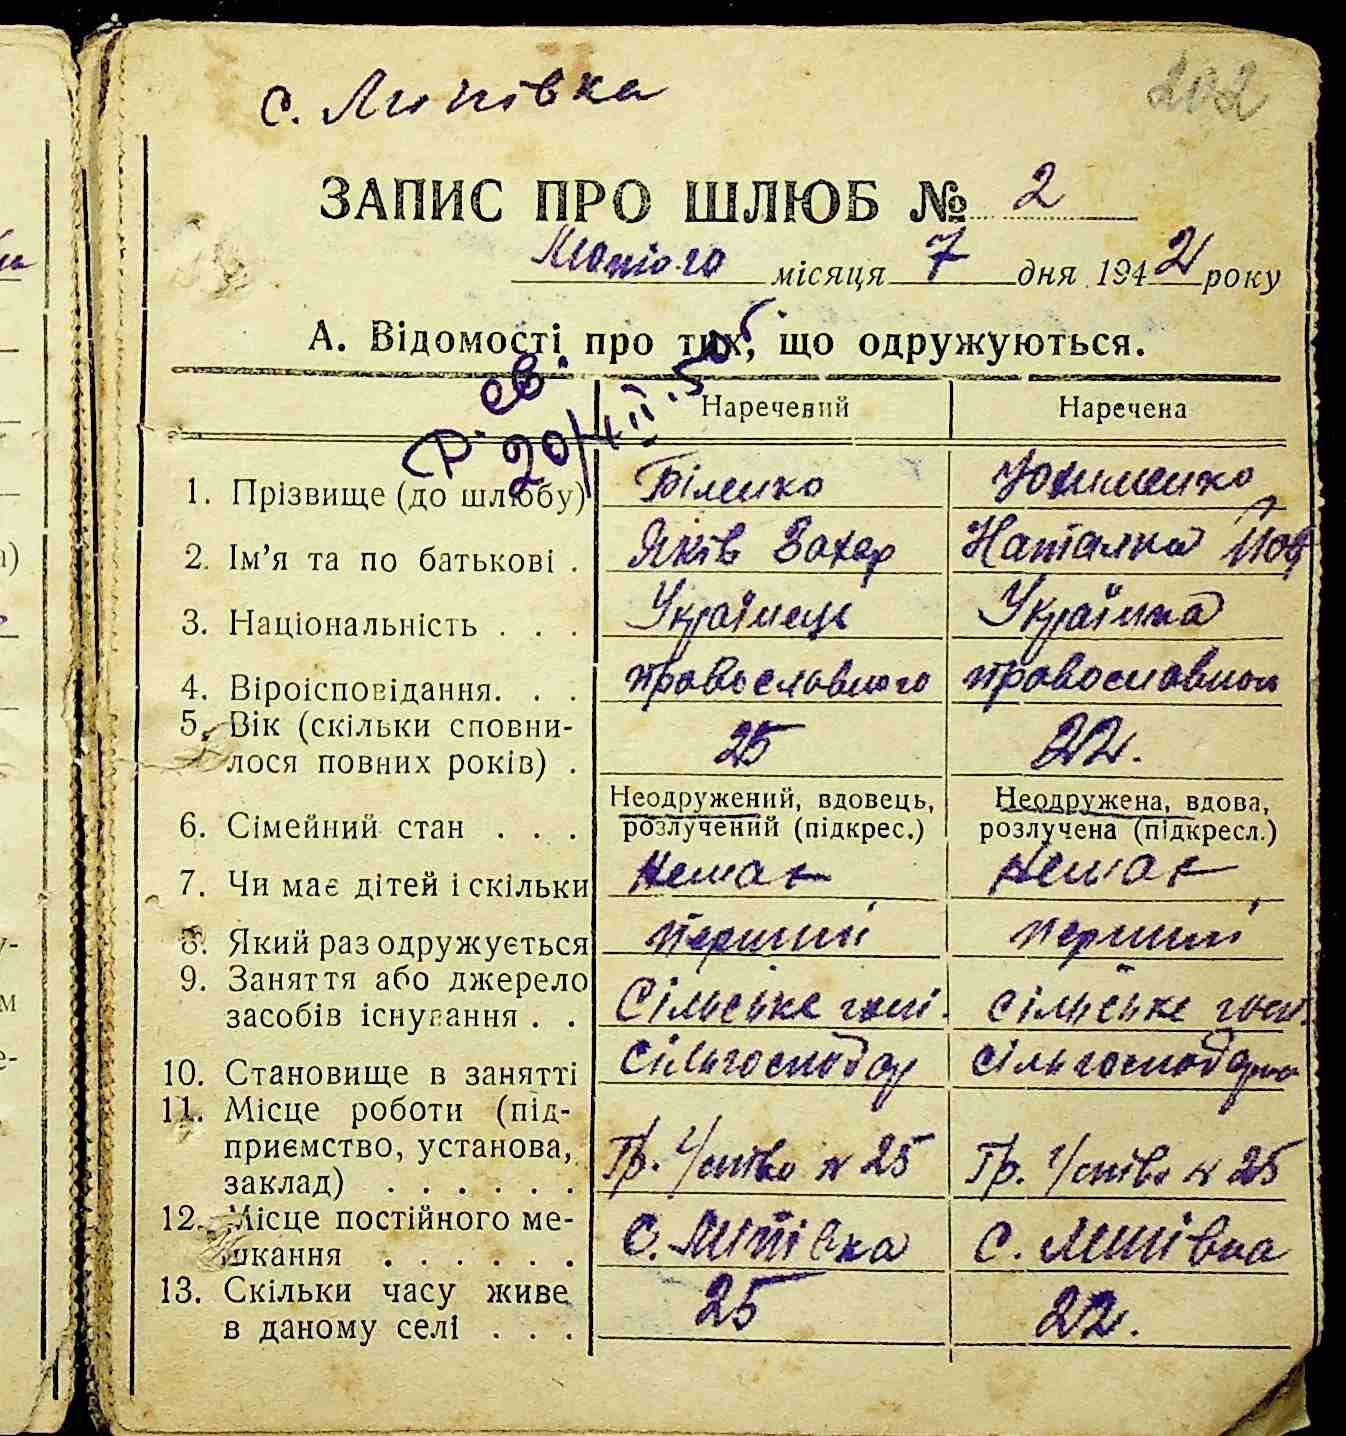 с. Липівка
202
ЗАПИС ПРО ШЛЮБ № 2
Лютого місяця 7 дня 1942 року
А. Відомості про тих, що одружуються.
Р. св.
Наречений Наречена
1. Прізвище (до шлюбу) Біленко Юхименко
2. Ім'я та по батькові . Яків Захар Наталка
3. Національність . . . Українець Українка
4. Віроісповідання. . . православного православної
5. Вік (скільки сповни-
лося повних років) . 25 22.
6. Сімейний стан . . . Неодружений, вдовець, розлучений (підкрес.) Неодружена, вдова, розлучена (підкресл.)
7. Чи має дітей і скільки Немає Немає
8. Який раз одружується перший перший
9. Заняття або джерело
засобів існування . . Сільське госп. сільське госп.
10. Становище в занятті сільгосподар сільгосподарка
11. Місце роботи (під-
приємство, установа,
заклад) . . . . . . Гр. г/ство № 25 Гр. г/ство № 25
12. Місце постійного ме-
шкання . . . . . . с. Липівка с. Липівка
13. Скільки часу живе
в даному селі . . . 25 22.